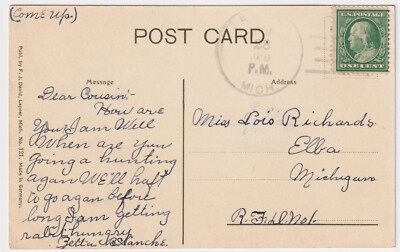 (Come Up.)
POST CARD.
P.M.
MICH.
U.S. POSTAGE
ONE CENT
Message
Address
Dear Cousin:-
How are
You? I am Well
When are you
going a hunting
again We'll haft
to go again before
long I am getting
rabit hungry.
Blanche.
Miss Lois Richards
Elba
Michigan
R.F.D. No 1.
Publ. by F. J. Daniel, Lapeer, Mich. No. 121. Made in Germany.